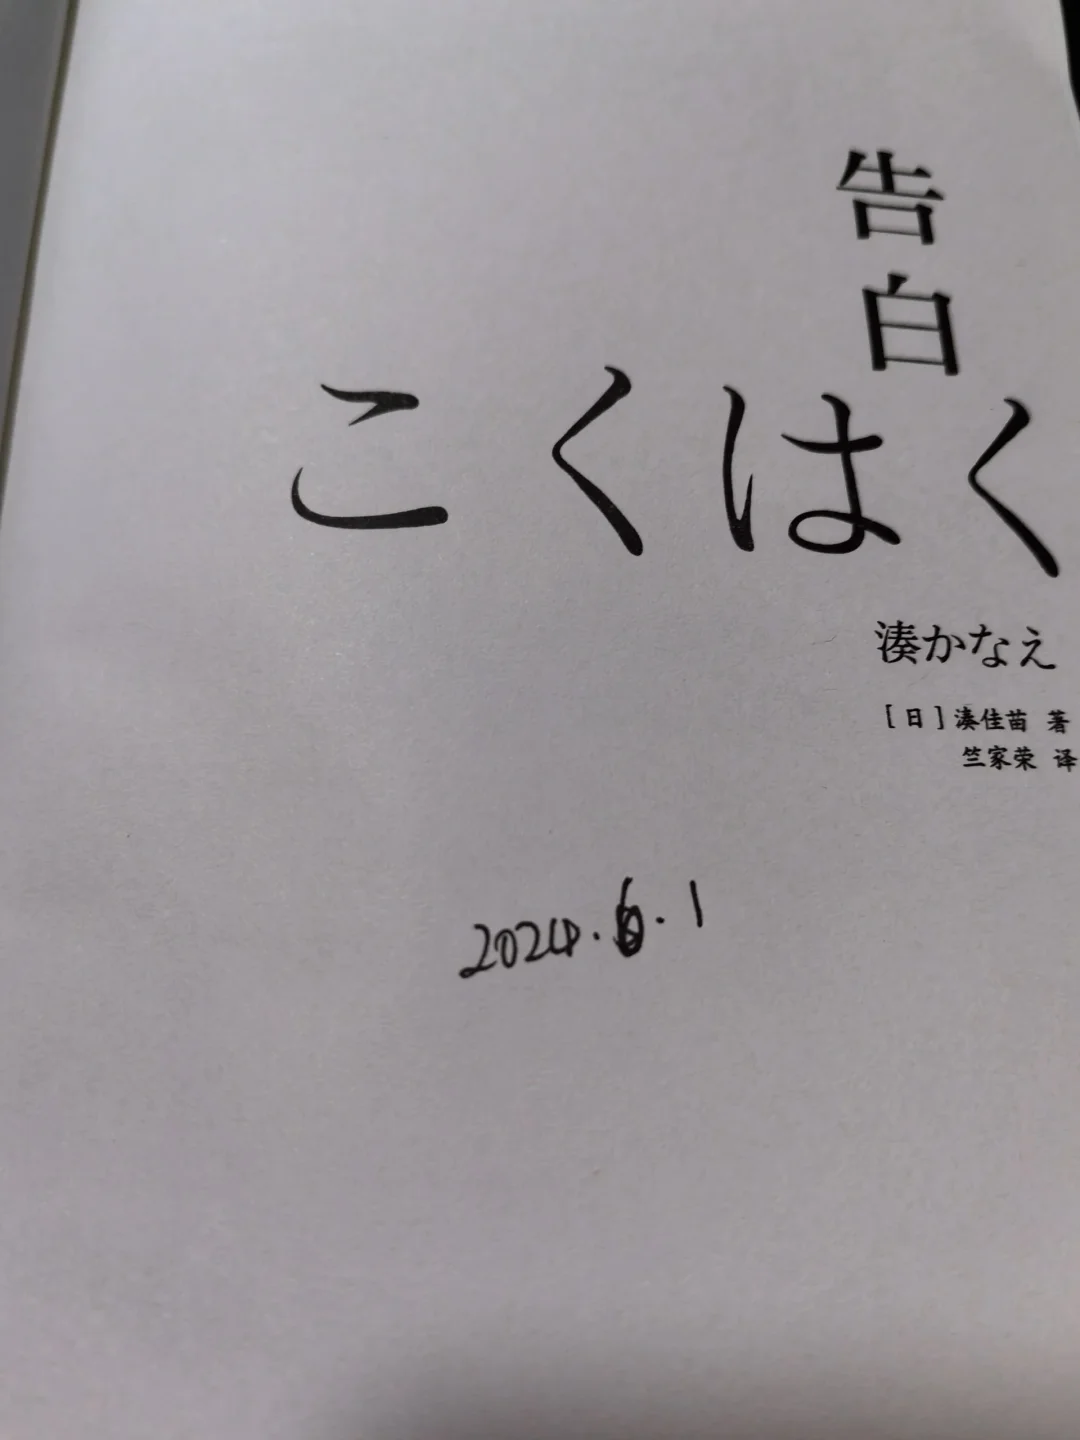 告白
こくはく
湊かなえ
[日]湊佳苗 著
竺家荣 译
2024.6.1